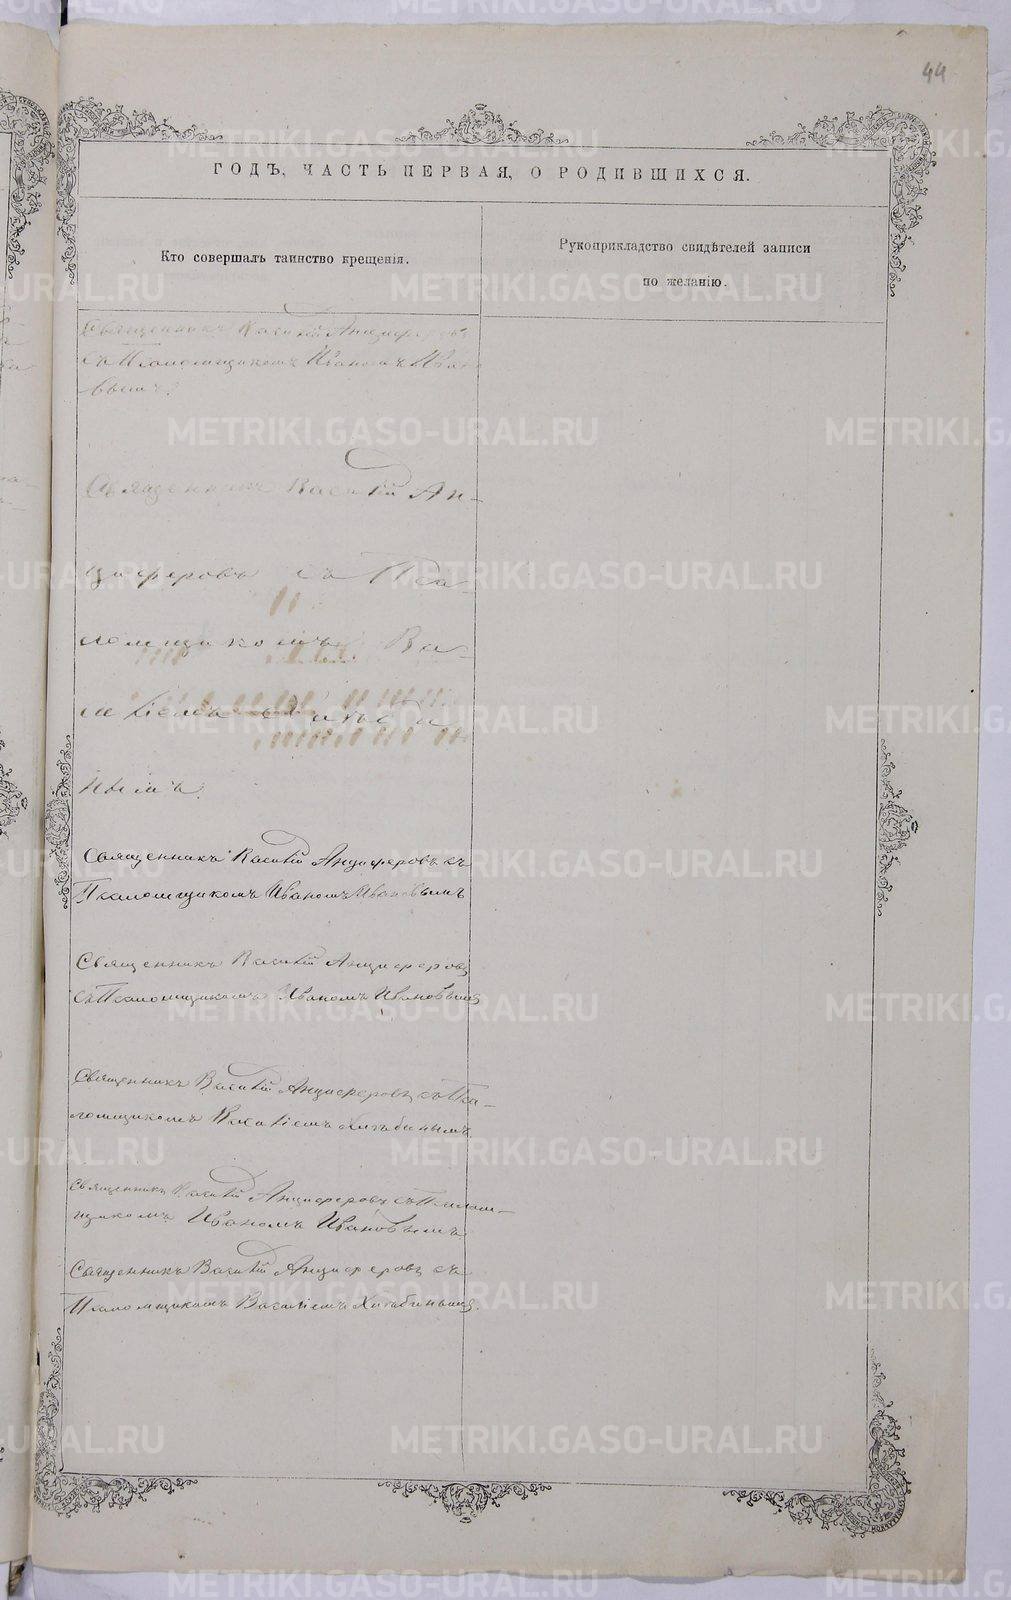 44
ГОДЪ, ЧАСТЬ ПЕРВАЯ, О РОДИВШИХСЯ.
Кто совершалъ таинство крещенія.
Рукоприкладство свидѣтелей записи
по желанію.
Священникъ Василій Анциферовъ
съ Псаломщикомъ Иваномъ Ивано
вымъ.
Священникъ Василій Ан-
циферовъ съ Пса-
ломщикомъ Ва-
силіемъ
нымъ.
Священникъ Василій Анциферовъ съ
Псаломщикомъ Иваномъ Ивановымъ
Священникъ Василій Анциферовъ
съ Псаломщикомъ Иваномъ Ивановымъ
Священникъ Василій Анциферовъ съ Пса-
ломщикомъ Василіемъ Хитъбинымъ
Священникъ Василій Анциферовъ съ Псалом-
щикомъ Иваномъ Ивановымъ
Священникъ Василій Анциферовъ съ
Псаломщикомъ Василіемъ
METRIKI.GASO-URAL.RU